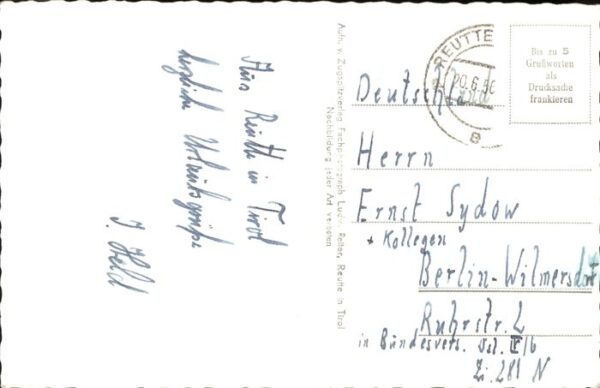 Aus Reutte in Tirol
herzliche Urlaubsgrüße
J. Held
Aufn. v. Zugspitzverlag Fachphotograph Ludw. Reiter, Reutte in Tirol
Nachbildung jeder Art verboten
REUTTE
20.6.56
Bis zu 5
Grußworten
als
Drucksache
frankieren
Deutschland
Herrn
Ernst Sydow
+ Kollegen
Berlin-Wilmersdorf
Ruhrstr. 2
in Bundesvers.
Zi. 281 N